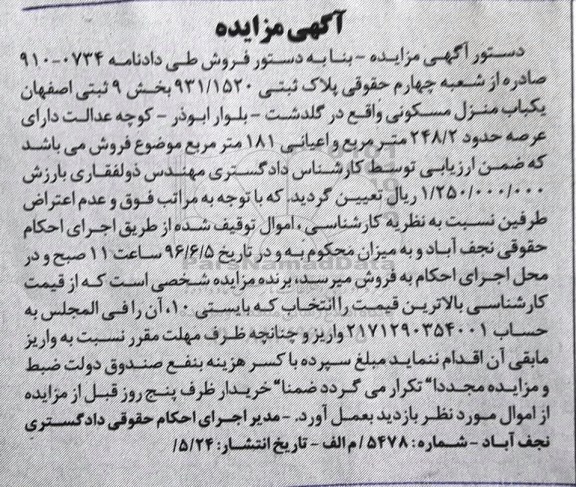 آگهی مزایده
دستور آگهی مزایده - بنا به دستور فروش طی دادنامه ۰۷۳۴-۹۱۰
صادره از شعبه چهارم حقوقی پلاک ثبتی ۹۳۱/۱۵۲۰ بخش ۹ ثبتی اصفهان
یکباب منزل مسکونی واقع در گلدشت - بلوار ابوذر - کوچه عدالت دارای
عرصه حدود ۲۴۸/۲ متر مربع و اعیانی ۱۸۱ متر مربع موضوع فروش می باشد
که ضمن ارزیابی توسط کارشناس دادگستری مهندس ذولفقاری بارزش
۱/۲۵۰/۰۰۰/۰۰۰ ریال تعیین گردید. که با توجه به مراتب فوق و عدم اعتراض
طرفین نسبت به نظریه کارشناسی، اموال توقیف شده از طریق اجرای احکام
حقوقی نجف آباد و به میزان محکوم به و در تاریخ ۹۶/۶/۵ ساعت ۱۱ صبح و در
محل اجرای احکام به فروش میرسد، برنده مزایده شخصی است که از قیمت
کارشناسی بالاترین قیمت را انتخاب که بایستی ۱۰، آن را فی المجلس به
حساب ۲۱۷۱۲۹۰۳۵۴۰۰۱ واریز و چنانچه ظرف مهلت مقرر نسبت به واریز
مابقی آن اقدام ننماید مبلغ سپرده با کسر هزینه بنفع صندوق دولت ضبط
و مزایده مجددا" تکرار می گردد ضمنا" خریدار ظرف پنج روز قبل از مزایده
از اموال مورد نظر بازدید بعمل آورد. - مدیر اجرای احکام حقوقی دادگستری
نجف آباد - شماره: ۵۴۷۸/ م الف - تاریخ انتشار: ۵/۲۴/
ParsNamadData